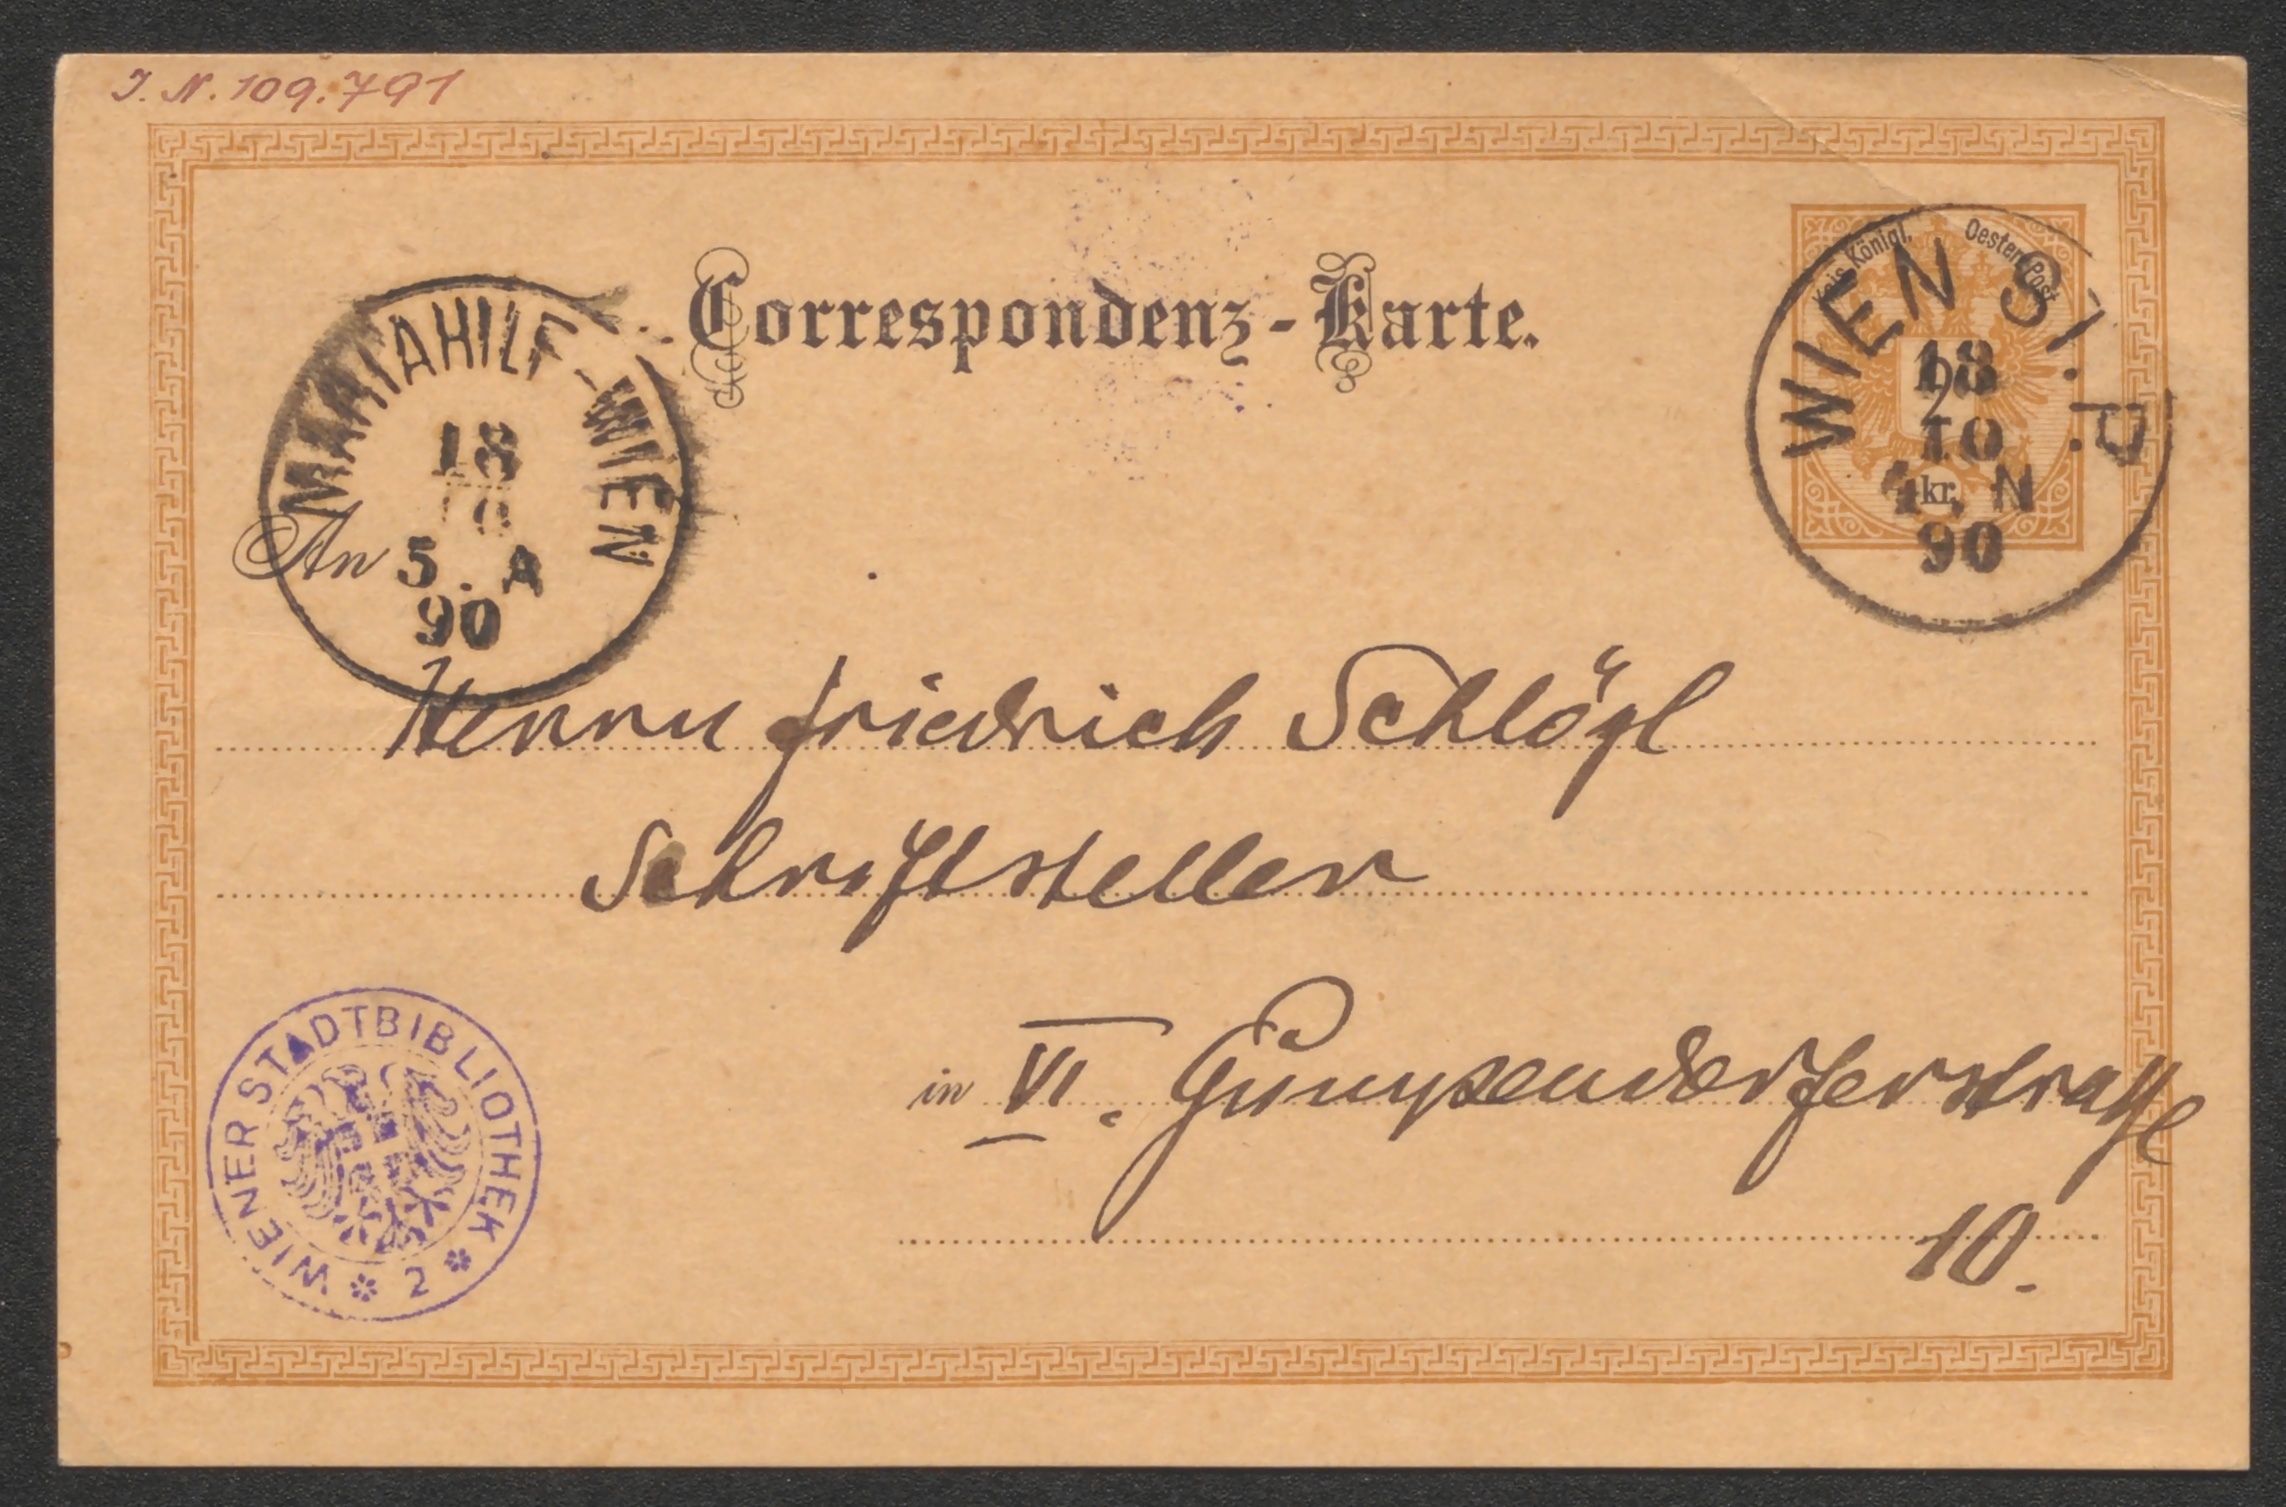 J. N. 109.791
Correspondenz-Karte.
Kais. Königl. Oesterr. Post
2 kr.
WIEN St. P.
18
10
4. N
90
MARIAHILF-WIEN
18
10
5. A
90
An
Herrn Friedrich Schlögl
Schriftsteller
in VI. Gumpendorferstrasse
10.
WIENER STADTBIBLIOTHEK * 2 *